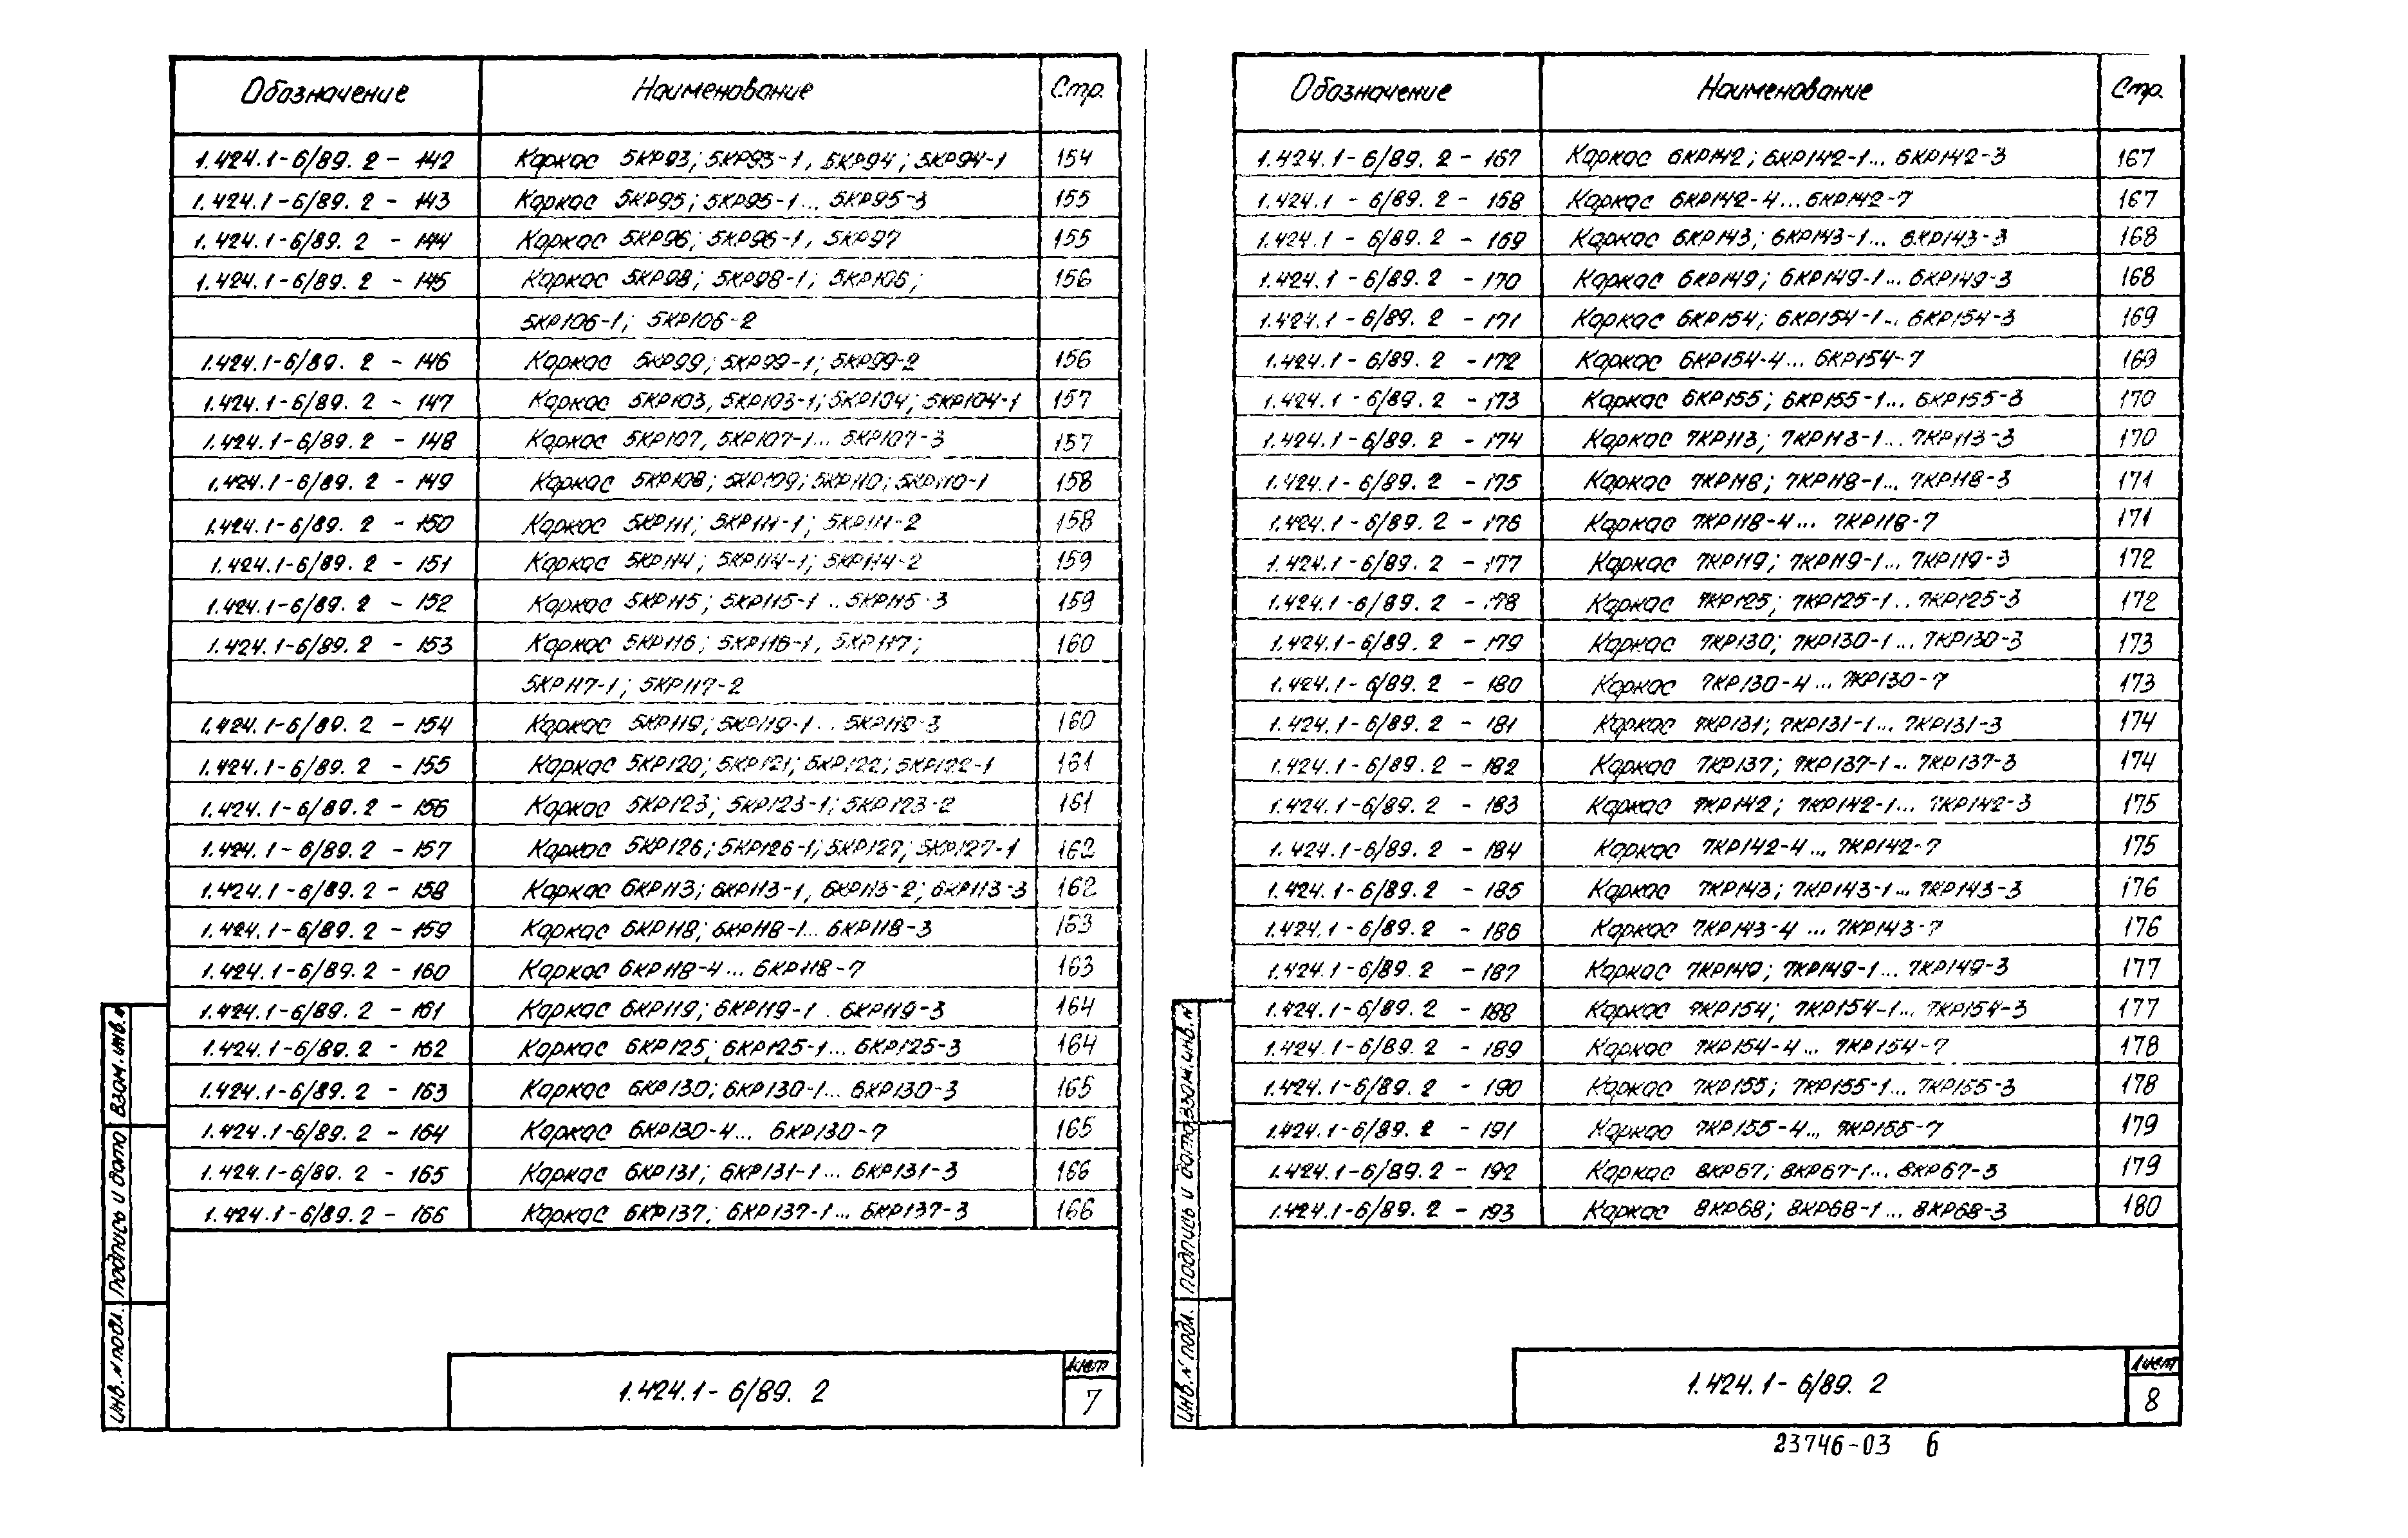 Обозначение Наименование Стр.
1.424.1-6/89. 2 - 142 Каркас 5КР93; 5КР93-1, 5КР94; 5КР94-1 154
1.424.1-6/89. 2 - 143 Каркас 5КР95; 5КР95-1... 5КР95-3 155
1.424.1-6/89. 2 - 144 Каркас 5КР96; 5КР96-1, 5КР97 155
1.424.1-6/89. 2 - 145 Каркас 5КР98; 5КР98-1; 5КР106; 156
5КР106-1; 5КР106-2
1.424.1-6/89. 2 - 146 Каркас 5КР99; 5КР99-1; 5КР99-2 156
1.424.1-6/89. 2 - 147 Каркас 5КР103, 5КР103-1; 5КР104; 5КР104-1 157
1.424.1-6/89. 2 - 148 Каркас 5КР107, 5КР107-1... 5КР107-3 157
1.424.1-6/89. 2 - 149 Каркас 5КР108; 5КР109; 5КР110; 5КР110-1 158
1.424.1-6/89. 2 - 150 Каркас 5КР111; 5КР111-1; 5КР111-2 158
1.424.1-6/89. 2 - 151 Каркас 5КР114; 5КР114-1; 5КР114-2 159
1.424.1-6/89. 2 - 152 Каркас 5КР115; 5КР115-1 .. 5КР115-3 159
1.424.1-6/89. 2 - 153 Каркас 5КР116; 5КР116-1, 5КР117; 160
5КР117-1; 5КР117-2
1.424.1-6/89. 2 - 154 Каркас 5КР119; 5КР119-1 .. 5КР119-3 160
1.424.1-6/89. 2 - 155 Каркас 5КР120; 5КР121; 5КР122; 5КР122-1 161
1.424.1-6/89. 2 - 156 Каркас 5КР123; 5КР123-1; 5КР123-2 161
1.424.1-6/89. 2 - 157 Каркас 5КР126; 5КР126-1; 5КР127; 5КР127-1 162
1.424.1-6/89. 2 - 158 Каркас 6КР113; 6КР113-1, 6КР113-2; 6КР113-3 162
1.424.1-6/89. 2 - 159 Каркас 6КР118; 6КР118-1... 6КР118-3 163
1.424.1-6/89. 2 - 160 Каркас 6КР118-4... 6КР118-7 163
1.424.1-6/89. 2 - 161 Каркас 6КР119; 6КР119-1 . 6КР119-3 164
1.424.1-6/89. 2 - 162 Каркас 6КР125; 6КР125-1... 6КР125-3 164
1.424.1-6/89. 2 - 163 Каркас 6КР130; 6КР130-1... 6КР130-3 165
1.424.1-6/89. 2 - 164 Каркас 6КР130-4... 6КР130-7 165
1.424.1-6/89. 2 - 165 Каркас 6КР131; 6КР131-1... 6КР131-3 166
1.424.1-6/89. 2 - 166 Каркас 6КР137; 6КР137-1... 6КР137-3 166
Инв. N подл. Подпись и дата Взам. инв. N
1.424.1-6/89. 2
Лист
7
Обозначение Наименование Стр.
1.424.1-6/89. 2 - 167 Каркас 6КР142; 6КР142-1... 6КР142-3 167
1.424.1-6/89. 2 - 168 Каркас 6КР142-4... 6КР142-7 167
1.424.1-6/89. 2 - 169 Каркас 6КР143; 6КР143-1... 6КР143-3 168
1.424.1-6/89. 2 - 170 Каркас 6КР149; 6КР149-1... 6КР149-3 168
1.424.1-6/89. 2 - 171 Каркас 6КР154; 6КР154-1... 6КР154-3 169
1.424.1-6/89. 2 - 172 Каркас 6КР154-4... 6КР154-7 169
1.424.1-6/89. 2 - 173 Каркас 6КР155; 6КР155-1... 6КР155-3 170
1.424.1-6/89. 2 - 174 Каркас 7КР113; 7КР113-1... 7КР113-3 170
1.424.1-6/89. 2 - 175 Каркас 7КР118; 7КР118-1... 7КР118-3 171
1.424.1-6/89. 2 - 176 Каркас 7КР118-4... 7КР118-7 171
1.424.1-6/89. 2 - 177 Каркас 7КР119; 7КР119-1... 7КР119-3 172
1.424.1-6/89. 2 - 178 Каркас 7КР125; 7КР125-1... 7КР125-3 172
1.424.1-6/89. 2 - 179 Каркас 7КР130; 7КР130-1... 7КР130-3 173
1.424.1-6/89. 2 - 180 Каркас 7КР130-4... 7КР130-7 173
1.424.1-6/89. 2 - 181 Каркас 7КР131; 7КР131-1... 7КР131-3 174
1.424.1-6/89. 2 - 182 Каркас 7КР137; 7КР137-1... 7КР137-3 174
1.424.1-6/89. 2 - 183 Каркас 7КР142; 7КР142-1... 7КР142-3 175
1.424.1-6/89. 2 - 184 Каркас 7КР142-4... 7КР142-7 175
1.424.1-6/89. 2 - 185 Каркас 7КР143; 7КР143-1... 7КР143-3 176
1.424.1-6/89. 2 - 186 Каркас 7КР143-4 ... 7КР143-7 176
1.424.1-6/89. 2 - 187 Каркас 7КР149; 7КР149-1... 7КР149-3 177
1.424.1-6/89. 2 - 188 Каркас 7КР154; 7КР154-1... 7КР154-3 177
1.424.1-6/89. 2 - 189 Каркас 7КР154-4... 7КР154-7 178
1.424.1-6/89. 2 - 190 Каркас 7КР155; 7КР155-1... 7КР155-3 178
1.424.1-6/89. 2 - 191 Каркас 7КР155-4... 7КР155-7 179
1.424.1-6/89. 2 - 192 Каркас 8КР67; 8КР67-1... 8КР67-3 179
1.424.1-6/89. 2 - 193 Каркас 8КР68; 8КР68-1... 8КР68-3 180
Инв. N подл. Подпись и дата Взам. инв. N
1.424.1-6/89. 2
Лист
8
23746-03 6